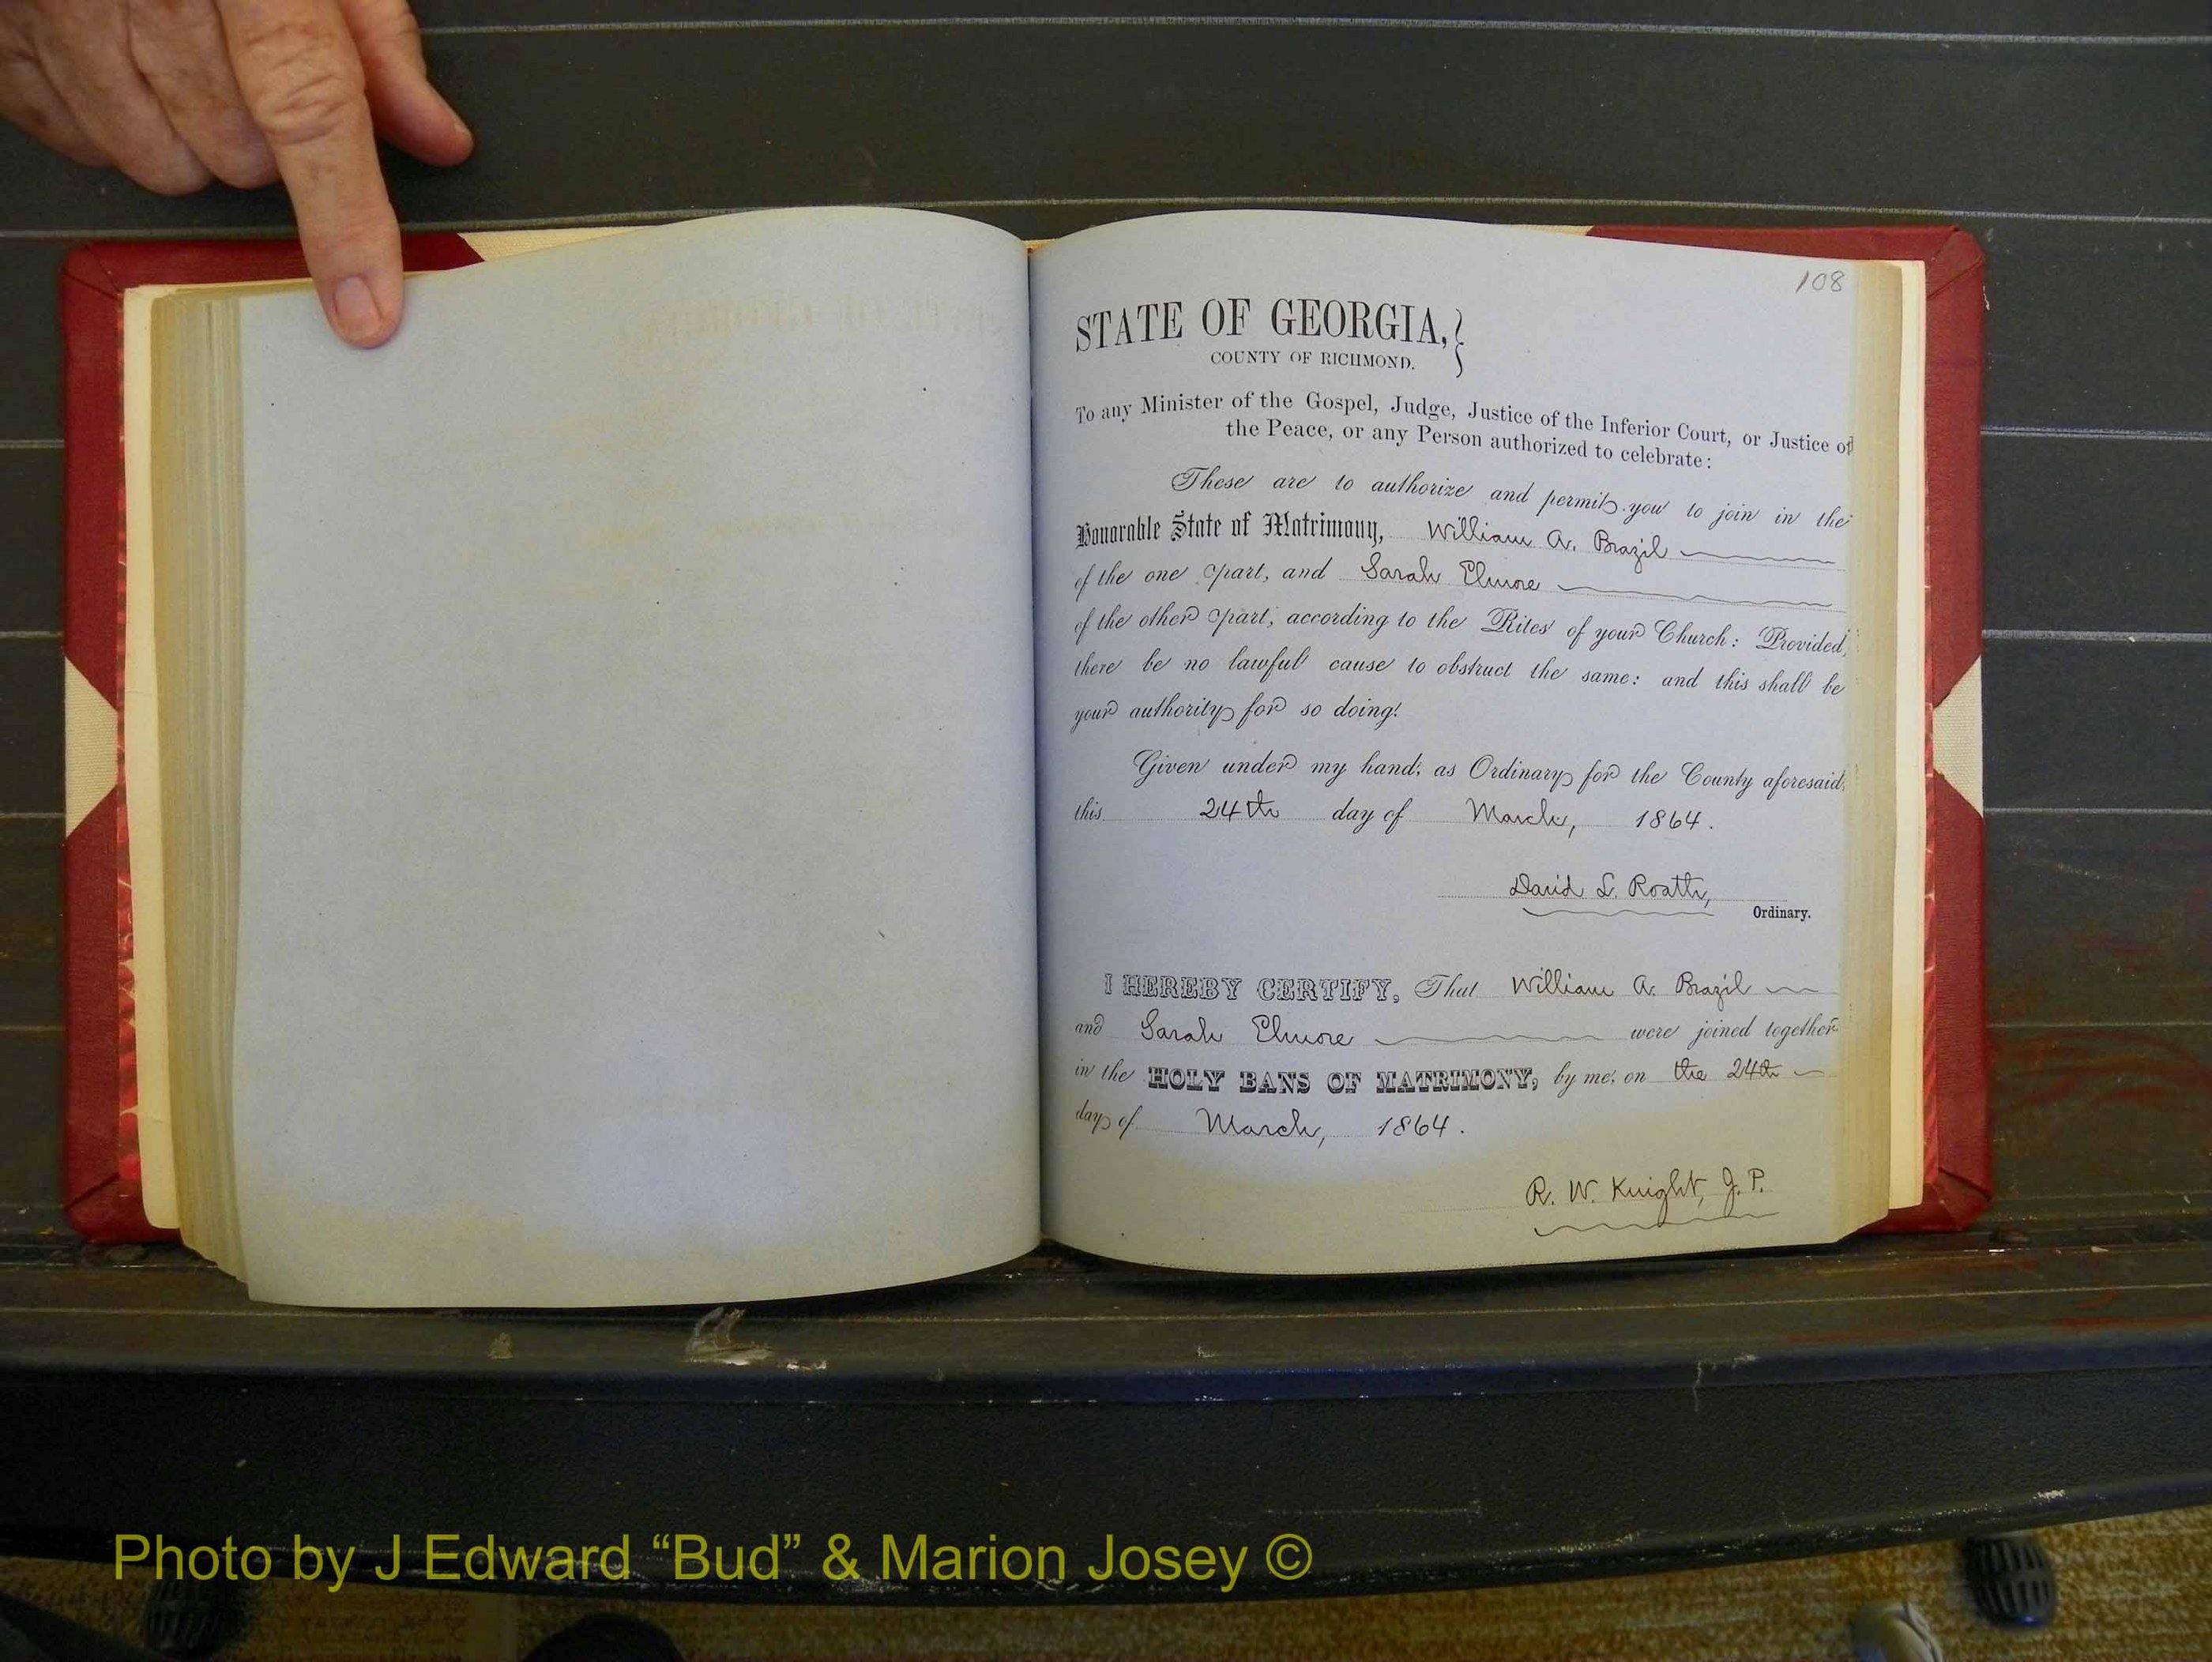 108
STATE OF GEORGIA,
COUNTY OF RICHMOND.
To any Minister of the Gospel, Judge, Justice of the Inferior Court, or Justice of
the Peace, or any Person authorized to celebrate:
These are to authorize and permit you to join in the
Honorable State of Matrimony, William A. Brazil
of the one part, and Sarah Elmore
of the other part, according to the Rites of your Church: Provided,
there be no lawful cause to obstruct the same: and this shall be
your authority for so doing!
Given under my hand, as Ordinary for the County aforesaid,
this 24th day of March, 1864.
David L. Roath,
Ordinary.
I HEREBY CERTIFY, That William A. Brazil
and Sarah Elmore were joined together
in the HOLY BANS OF MATRIMONY, by me, on the 24th
day of March, 1864.
R. W. Knight, J. P.
Photo by J Edward “Bud” & Marion Josey ©